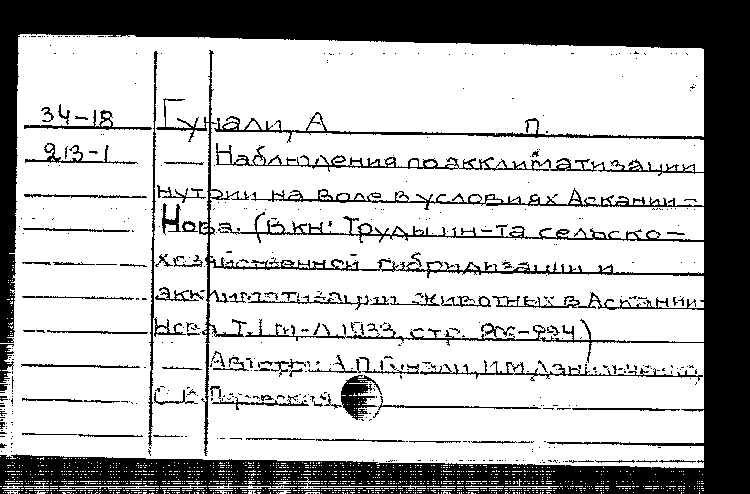 34-18 Гунали, А П.
213-1 Наблюдения по акклиматизации
нутрии на воле в условиях Аскании-
Нова. (В кн: Труды ин-та сельско-
хозяйственной гибридизации и
акклиматизации животных в Аскании-
Нова. Т. I М.-Л. 1933, стр.
Авторы: А.П. Гунали, И.М. Данильченко,
С. В.